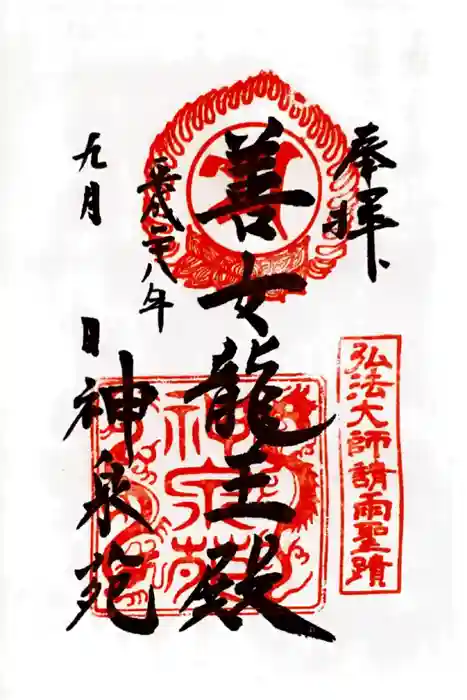 奉拝
弘法大師請雨聖蹟
善女龍王殿
神泉苑
平成二十八年
九月 日
神泉苑